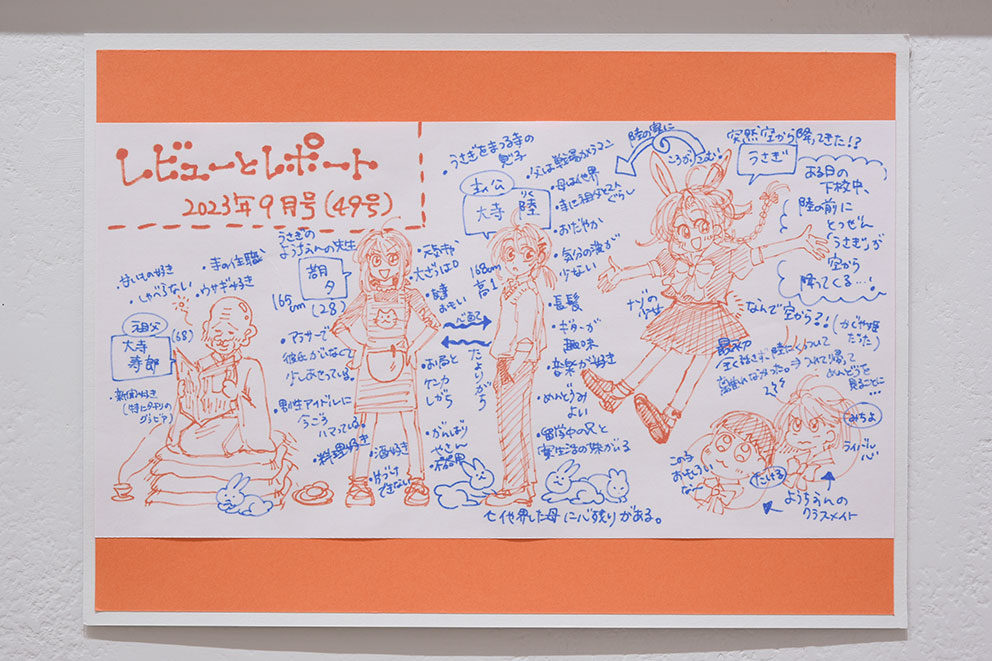 レビューとレポート
2023年9月号(49号)
祖父
大寺
寿郎
(68)
・甘いもの好き
・しゃべらない
・寺の住職
・ウサギ好き
・新聞好き
うさぎの
ようちえんの先生
胡
夕
165cm
(28)
・元気か
大ざっぱ
・アラサーで
彼氏がいなくて
少しあせっている。
・男性アイドルに
今ごろ
ハマっている。
・料理好き
・酒好き
・片づけ
できない
心配で
たよりがち
・おこると
ケンカ
しがち
・がんばり
やさん
・不器用
・うさぎをまつる寺の
息子
・父は戦場カメラマン
・母は他界
・寺に祖父と2人
ぐらし
・おだやか
・気分の波が
少ない
主人公
大寺
りく
陸
168cm
高1
・長髪
・ギターが
趣味
・音楽が好き
・めんどうみ
よい
・留学中の兄と
亡他界した母に心残りがある。
陸の家に
ころがりこむ!
突然空から降ってきた!?
うさぎ
ある日の
下校中、
陸の前に
とつぜん
「うさぎ」が
空から
降ってくる…!
ナゾの
少女
なんで空から?!
(かぐや姫
だった)
最初
めんどうを
見ることに…
みちよ
ライバル
たける
この子
おもしろい
なー
ようちえんの
クラスメイト